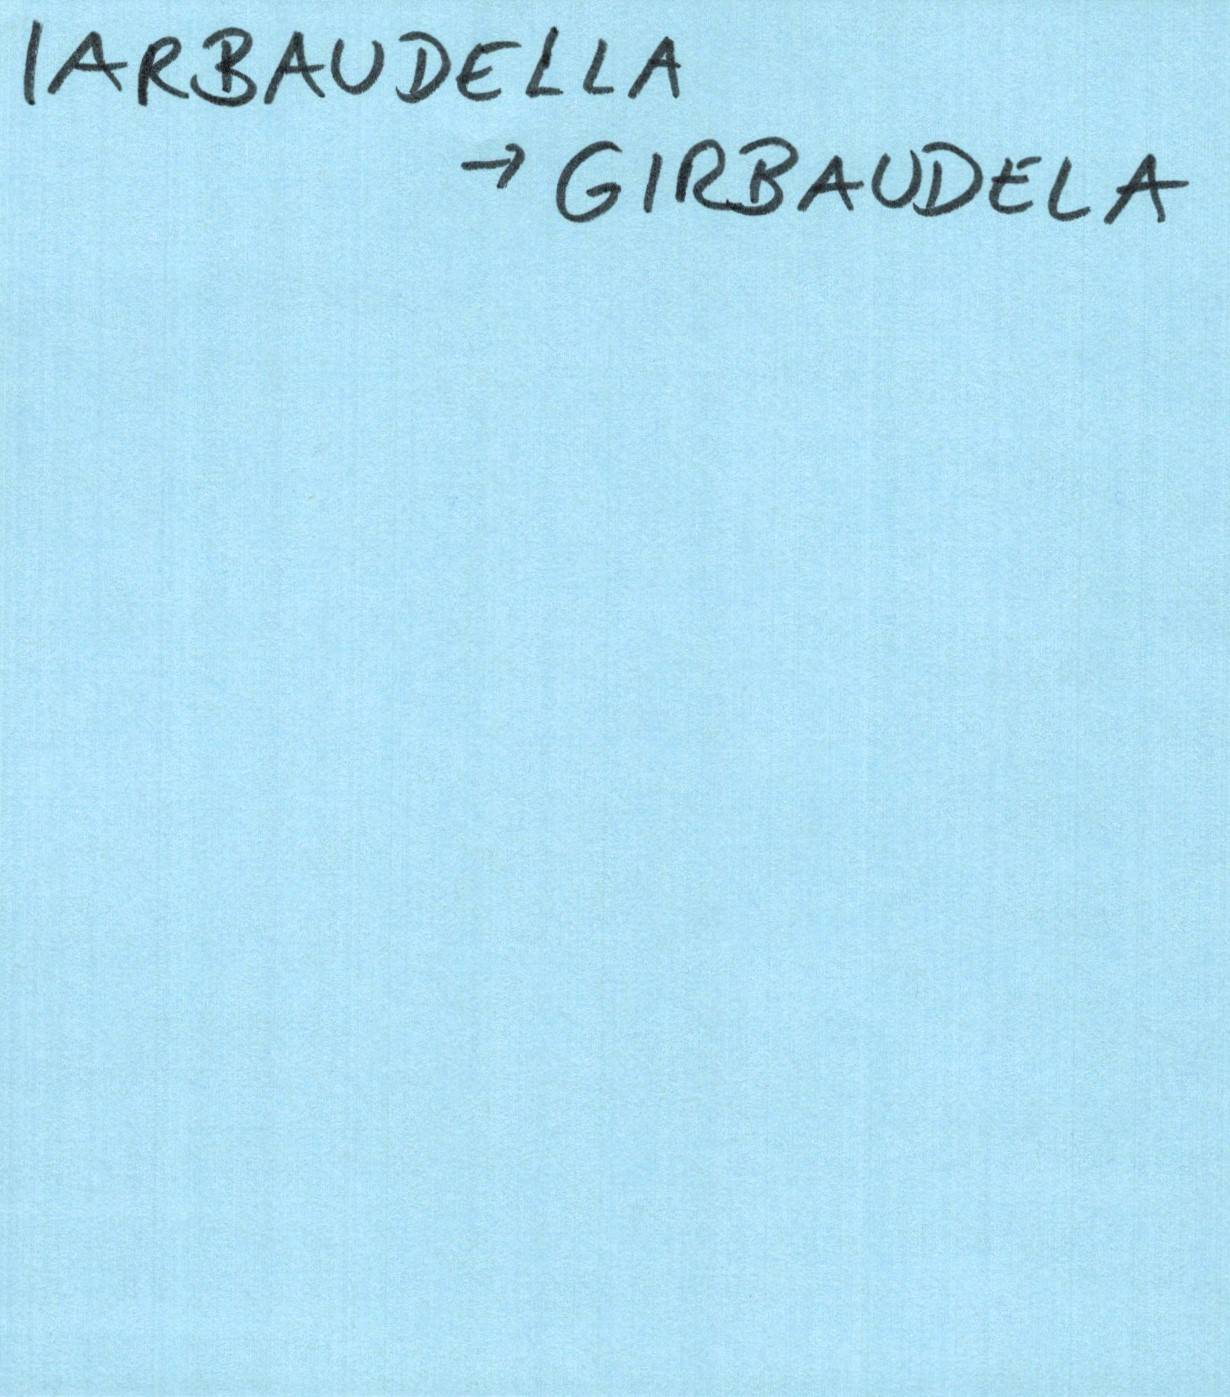 IARBAUDELLA
→ GIRBAUDELA